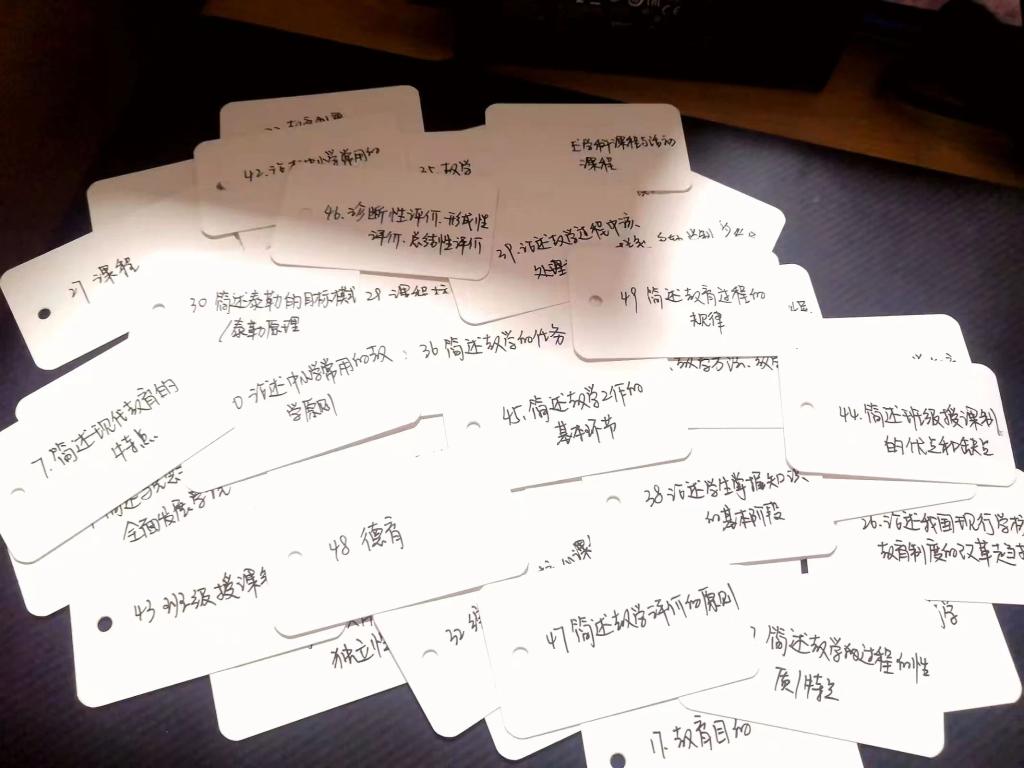 42.论述中小学常用的
25.教学
至学科课程与活动
课程
46.诊断性评价.形成性
评价.总结性评价
39.论述教学过程中应
处理
27 课程
30 简述泰勒的目标模
/泰勒原理
28 课程
49 简述教育过程的
规律
7.简述现代教育的
特点
论述中小学常用的教
学原则
36 简述教学的任务
45.简述教学工作的
基本环节
教学方法、教
44.简述班级授课制
的优点和缺点
全面发展学说
48 德育
38 论述学生掌握知识
的基本阶段
26.论述我国现行学校
教育制度的改革走
43 班级授课
独立性
32
47 简述教学评价的原则
简述教学和过程的性
质/特点
学
17.教育目的